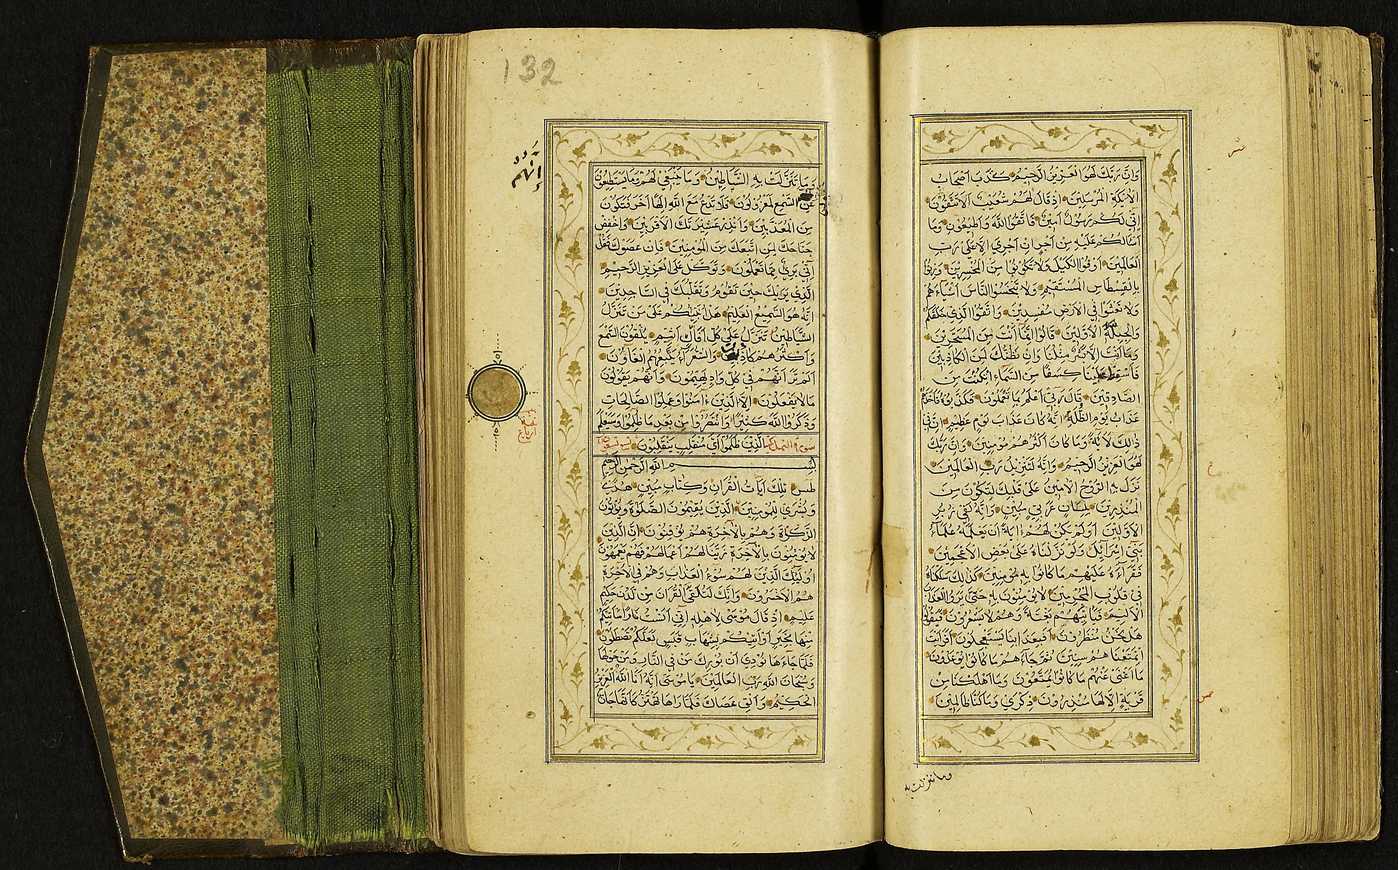 وَاِنَّ رَبَّكَ لَهُوَ الْعَزِيزُ الرَّحِيمُ كَذَّبَ اَصْحَابُ
الْاَيْكَةِ الْمُرْسَلِينَ اِذْ قَالَ لَهُمْ شُعَيْبٌ اَلَا تَتَّقُونَ
اِنِّي لَكُمْ رَسُولٌ اَمِينٌ فَاتَّقُوا اللّٰهَ وَاَطِيعُونِ وَمَا
اَسْأَلُكُمْ عَلَيْهِ مِنْ اَجْرٍ اِنْ اَجْرِيَ اِلَّا عَلٰى رَبِّ
الْعَالَمِينَ اَوْفُوا الْكَيْلَ وَلَا تَكُونُوا مِنَ الْمُخْسِرِينَ وَزِنُوا
بِالْقِسْطَاسِ الْمُسْتَقِيمِ وَلَا تَبْخَسُوا النَّاسَ اَشْيَاءَهُمْ
وَلَا تَعْثَوْا فِي الْاَرْضِ مُفْسِدِينَ وَاتَّقُوا الَّذِي خَلَقَكُمْ
وَالْجِبِلَّةَ الْاَوَّلِينَ قَالُوا اِنَّمَا اَنْتَ مِنَ الْمُسَحَّرِينَ
وَمَا اَنْتَ اِلَّا بَشَرٌ مِثْلُنَا وَاِنْ نَظُنُّكَ لَمِنَ الْكَاذِبِينَ
فَاَسْقِطْ عَلَيْنَا كِسَفًا مِنَ السَّمَاءِ اِنْ كُنْتَ مِنَ
الصَّادِقِينَ قَالَ رَبِّي اَعْلَمُ بِمَا تَعْمَلُونَ فَكَذَّبُوهُ فَاَخَذَهُمْ
عَذَابُ يَوْمِ الظُّلَّةِ اِنَّهُ كَانَ عَذَابَ يَوْمٍ عَظِيمٍ اِنَّ فِي
ذٰلِكَ لَاٰيَةً وَمَا كَانَ اَكْثَرُهُمْ مُؤْمِنِينَ وَاِنَّ رَبَّكَ
لَهُوَ الْعَزِيزُ الرَّحِيمُ وَاِنَّهُ لَتَنْزِيلُ رَبِّ الْعَالَمِينَ
نَزَلَ بِهِ الرُّوحُ الْاَمِينُ عَلٰى قَلْبِكَ لِتَكُونَ مِنَ
الْمُنْذِرِينَ بِلِسَانٍ عَرَبِيٍّ مُبِينٍ وَاِنَّهُ لَفِي زُبُرِ
الْاَوَّلِينَ اَوَلَمْ يَكُنْ لَهُمْ اٰيَةً اَنْ يَعْلَمَهُ عُلَمَاءُ
بَنِي اِسْرَائِيلَ وَلَوْ نَزَّلْنَاهُ عَلٰى بَعْضِ الْاَعْجَمِينَ
فَقَرَاَهُ عَلَيْهِمْ مَا كَانُوا بِهِ مُؤْمِنِينَ كَذٰلِكَ سَلَكْنَاهُ
فِي قُلُوبِ الْمُجْرِمِينَ لَا يُؤْمِنُونَ بِهِ حَتّٰى يَرَوُا الْعَذَابَ
الْاَلِيمَ فَيَأْتِيَهُمْ بَغْتَةً وَهُمْ لَا يَشْعُرُونَ فَيَقُولُوا
هَلْ نَحْنُ مُنْظَرُونَ اَفَبِعَذَابِنَا يَسْتَعْجِلُونَ اَفَرَاَيْتَ
اِنْ مَتَّعْنَاهُمْ سِنِينَ ثُمَّ جَاءَهُمْ مَا كَانُوا يُوعَدُونَ
مَا اَغْنٰى عَنْهُمْ مَا كَانُوا يُمَتَّعُونَ وَمَا اَهْلَكْنَا مِنْ
قَرْيَةٍ اِلَّا لَهَا مُنْذِرُونَ ذِكْرٰى وَمَا كُنَّا ظَالِمِينَ
وما تنزلت به
132
وَمَا تَنَزَّلَتْ بِهِ الشَّيَاطِينُ وَمَا يَنْبَغِي لَهُمْ وَمَا يَسْتَطِيعُونَ
عَنِ السَّمْعِ لَمَعْزُولُونَ فَلَا تَدْعُ مَعَ اللّٰهِ اِلٰهًا اٰخَرَ فَتَكُونَ
مِنَ الْمُعَذَّبِينَ وَاَنْذِرْ عَشِيرَتَكَ الْاَقْرَبِينَ وَاخْفِضْ
جَنَاحَكَ لِمَنِ اتَّبَعَكَ مِنَ الْمُؤْمِنِينَ فَاِنْ عَصَوْكَ فَقُلْ
اِنِّي بَرِيءٌ مِمَّا تَعْمَلُونَ وَتَوَكَّلْ عَلَى الْعَزِيزِ الرَّحِيمِ
الَّذِي يَرٰيكَ حِينَ تَقُومُ وَتَقَلُّبَكَ فِي السَّاجِدِينَ
اِنَّهُ هُوَ السَّمِيعُ الْعَلِيمُ هَلْ اُنَبِّئُكُمْ عَلٰى مَنْ تَنَزَّلُ
الشَّيَاطِينُ تَنَزَّلُ عَلٰى كُلِّ اَفَّاكٍ اَثِيمٍ يُلْقُونَ السَّمْعَ
وَاَكْثَرُهُمْ كَاذِبُونَ وَالشُّعَرَاءُ يَتَّبِعُهُمُ الْغَاوُونَ
اَلَمْ تَرَ اَنَّهُمْ فِي كُلِّ وَادٍ يَهِيمُونَ وَاَنَّهُمْ يَقُولُونَ
مَا لَا يَفْعَلُونَ اِلَّا الَّذِينَ اٰمَنُوا وَعَمِلُوا الصَّالِحَاتِ
وَذَكَرُوا اللّٰهَ كَثِيرًا وَانْتَصَرُوا مِنْ بَعْدِ مَا ظُلِمُوا وَسَيَعْلَمُ
سورة النمل الَّذِينَ ظَلَمُوا اَيَّ مُنْقَلَبٍ يَنْقَلِبُونَ
بِسْمِ اللّٰهِ الرَّحْمٰنِ الرَّحِيمِ
طٰسٓ تِلْكَ اٰيَاتُ الْقُرْاٰنِ وَكِتَابٍ مُبِينٍ هُدًى
وَبُشْرٰى لِلْمُؤْمِنِينَ الَّذِينَ يُقِيمُونَ الصَّلٰوةَ وَيُؤْتُونَ
الزَّكٰوةَ وَهُمْ بِالْاٰخِرَةِ هُمْ يُوقِنُونَ اِنَّ الَّذِينَ
لَا يُؤْمِنُونَ بِالْاٰخِرَةِ زَيَّنَّا لَهُمْ اَعْمَالَهُمْ فَهُمْ يَعْمَهُونَ
اُولٰئِكَ الَّذِينَ لَهُمْ سُوءُ الْعَذَابِ وَهُمْ فِي الْاٰخِرَةِ
هُمُ الْاَخْسَرُونَ وَاِنَّكَ لَتُلَقَّى الْقُرْاٰنَ مِنْ لَدُنْ حَكِيمٍ
عَلِيمٍ اِذْ قَالَ مُوسٰى لِاَهْلِهِ اِنِّي اٰنَسْتُ نَارًا سَاٰتِيكُمْ
مِنْهَا بِخَبَرٍ اَوْ اٰتِيكُمْ بِشِهَابٍ قَبَسٍ لَعَلَّكُمْ تَصْطَلُونَ
فَلَمَّا جَاءَهَا نُودِيَ اَنْ بُورِكَ مَنْ فِي النَّارِ وَمَنْ حَوْلَهَا
وَسُبْحَانَ اللّٰهِ رَبِّ الْعَالَمِينَ يَا مُوسٰى اِنَّهُ اَنَا اللّٰهُ الْعَزِيزُ
الْحَكِيمُ وَاَلْقِ عَصَاكَ فَلَمَّا رَاٰهَا تَهْتَزُّ كَاَنَّهَا جَانٌّ